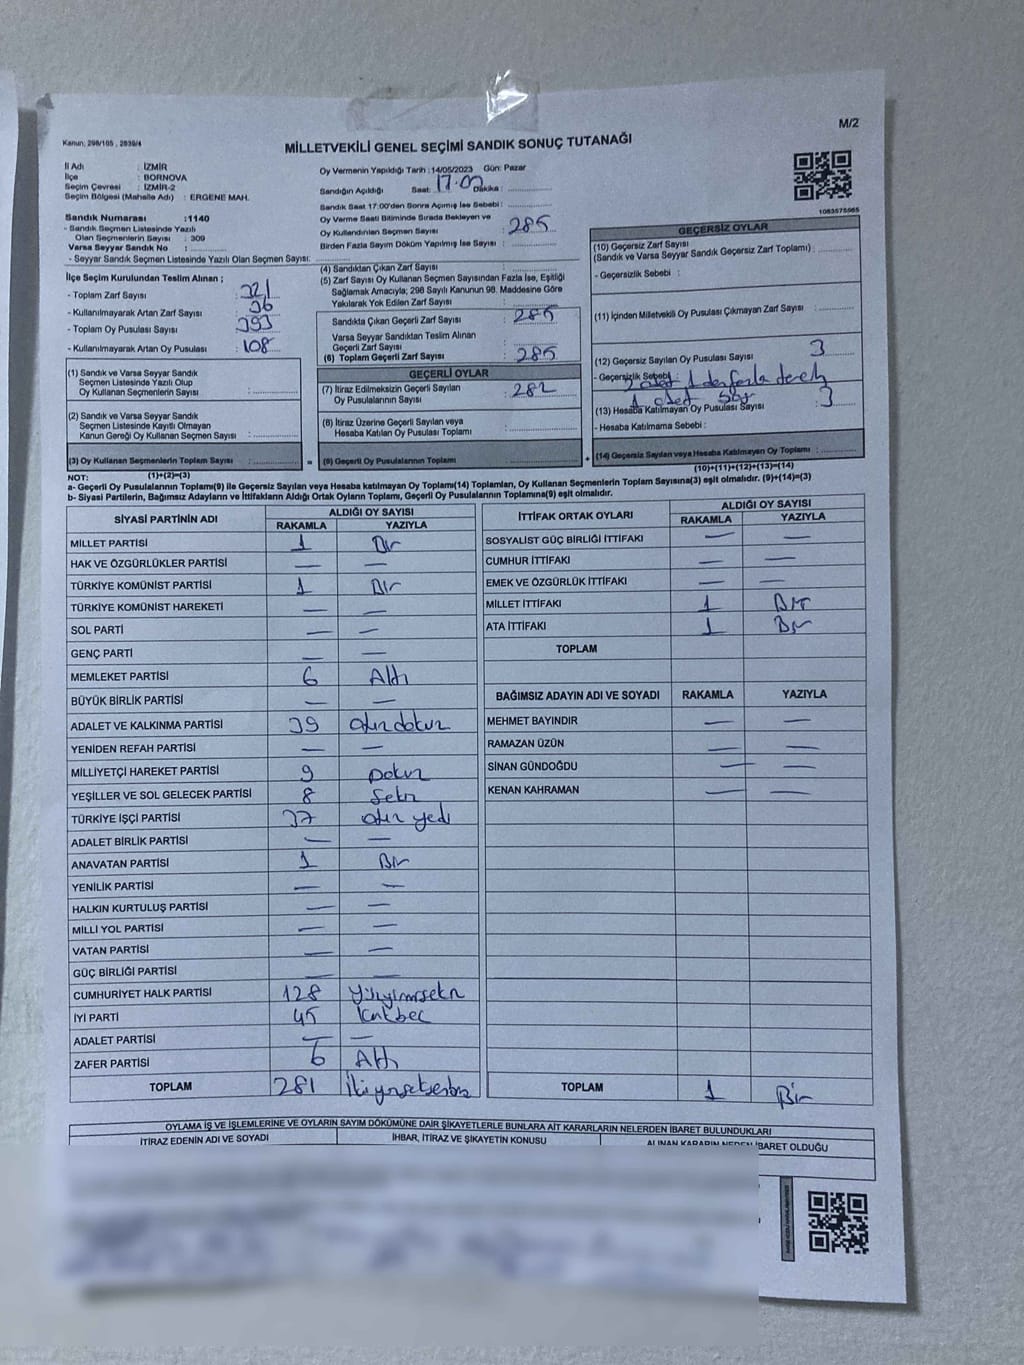 M/2
Kanun: 298/105 , 2839/4
MİLLETVEKİLİ GENEL SEÇİMİ SANDIK SONUÇ TUTANAĞI
İl Adı : İZMİR
İlçe : BORNOVA
Seçim Çevresi : İZMİR-2
Seçim Bölgesi (Mahalle Adı) : ERGENE MAH.
Sandık Numarası :1140
- Sandık Seçmen Listesinde Yazılı
Olan Seçmenlerin Sayısı : 309
Varsa Seyyar Sandık No :
- Seyyar Sandık Seçmen Listesinde Yazılı Olan Seçmen Sayısı:
Oy Vermenin Yapıldığı Tarih :14/05/2023 Gün: Pazar
Sandığın Açıldığı Saat: 17.00 Dakika :
Sandık Saat 17:00'den Sonra Açılmış İse Sebebi :
Oy Verme Saati Bitiminde Sırada Bekleyen ve
Oy Kullandırılan Seçmen Sayısı : 285
Birden Fazla Sayım Döküm Yapılmış İse Sayısı :
1083575965
İlçe Seçim Kurulundan Teslim Alınan ;
- Toplam Zarf Sayısı : 321
- Kullanılmayarak Artan Zarf Sayısı : 36
- Toplam Oy Pusulası Sayısı : 393
- Kullanılmayarak Artan Oy Pusulası : 108
(1) Sandık ve Varsa Seyyar Sandık
Seçmen Listesinde Yazılı Olup
Oy Kullanan Seçmenlerin Sayısı :
(2) Sandık ve Varsa Seyyar Sandık
Seçmen Listesinde Kayıtlı Olmayan
Kanun Gereği Oy Kullanan Seçmen Sayısı :
(3) Oy Kullanan Seçmenlerin Toplam Sayısı :
(4) Sandıktan Çıkan Zarf Sayısı :
(5) Zarf Sayısı Oy Kullanan Seçmen Sayısından Fazla İse, Eşitliği
Sağlamak Amacıyla; 298 Sayılı Kanunun 98. Maddesine Göre
Yakılarak Yok Edilen Zarf Sayısı :
Sandıkta Çıkan Geçerli Zarf Sayısı : 285
Varsa Seyyar Sandıktan Teslim Alınan
Geçerli Zarf Sayısı :
(6) Toplam Geçerli Zarf Sayısı : 285
GEÇERLİ OYLAR
(7) İtiraz Edilmeksizin Geçerli Sayılan
Oy Pusulalarının Sayısı : 282
(8) İtiraz Üzerine Geçerli Sayılan veya
Hesaba Katılan Oy Pusulası Toplamı :
= (9) Geçerli Oy Pusulalarının Toplamı :
GEÇERSİZ OYLAR
(10) Geçersiz Zarf Sayısı
(Sandık ve Varsa Seyyar Sandık Geçersiz Zarf Toplamı) :
- Geçersizlik Sebebi :
(11) İçinden Milletvekili Oy Pusulası Çıkmayan Zarf Sayısı :
(12) Geçersiz Sayılan Oy Pusulası Sayısı : 3
- Geçersizlik Sebebi : 2 adet 1 den fazla
1 adet
(13) Hesaba Katılmayan Oy Pusulası Sayısı : 3
- Hesaba Katılmama Sebebi :
+ (14) Geçersiz Sayılan veya Hesaba Katılmayan Oy Toplamı :
NOT: (1)+(2)=(3)
(10)+(11)+(12)+(13)=(14)
a- Geçerli Oy Pusulalarının Toplamı(9) ile Geçersiz Sayılan veya Hesaba katılmayan Oy Toplamı(14) Toplamları, Oy Kullanan Seçmenlerin Toplam Sayısına(3) eşit olmalıdır. (9)+(14)=(3)
b- Siyasi Partilerin, Bağımsız Adayların ve İttifakların Aldığı Ortak Oyların Toplamı, Geçerli Oy Pusulalarının Toplamına(9) eşit olmalıdır.
SİYASİ PARTİNİN ADI ALDIĞI OY SAYISI
RAKAMLA YAZIYLA
MİLLET PARTİSİ 1 Bir
HAK VE ÖZGÜRLÜKLER PARTİSİ — —
TÜRKİYE KOMÜNİST PARTİSİ 1 Bir
TÜRKİYE KOMÜNİST HAREKETİ — —
SOL PARTİ — —
GENÇ PARTİ — —
MEMLEKET PARTİSİ 6 Altı
BÜYÜK BİRLİK PARTİSİ — —
ADALET VE KALKINMA PARTİSİ 39 otuz dokuz
YENİDEN REFAH PARTİSİ — —
MİLLİYETÇİ HAREKET PARTİSİ 9 Dokuz
YEŞİLLER VE SOL GELECEK PARTİSİ 8 Sekiz
TÜRKİYE İŞÇİ PARTİSİ 37 otuz yedi
ADALET BİRLİK PARTİSİ — —
ANAVATAN PARTİSİ 1 Bir
YENİLİK PARTİSİ — —
HALKIN KURTULUŞ PARTİSİ — —
MİLLİ YOL PARTİSİ — —
VATAN PARTİSİ — —
GÜÇ BİRLİĞİ PARTİSİ — —
CUMHURİYET HALK PARTİSİ 128 Yüzyirmisekiz
İYİ PARTİ 45 Kırkbeş
ADALET PARTİSİ — —
ZAFER PARTİSİ 6 Altı
TOPLAM 281 İkiyüzseksenbir
İTTİFAK ORTAK OYLARI ALDIĞI OY SAYISI
RAKAMLA YAZIYLA
SOSYALİST GÜÇ BİRLİĞİ İTTİFAKI — —
CUMHUR İTTİFAKI — —
EMEK VE ÖZGÜRLÜK İTTİFAKI — —
MİLLET İTTİFAKI 1 Bir
ATA İTTİFAKI 1 Bir
TOPLAM
BAĞIMSIZ ADAYIN ADI VE SOYADI RAKAMLA YAZIYLA
MEHMET BAYINDIR — —
RAMAZAN ÜZÜN — —
SİNAN GÜNDOĞDU — —
KENAN KAHRAMAN — —
TOPLAM 1 Bir
OYLAMA İŞ VE İŞLEMLERİNE VE OYLARIN SAYIM DÖKÜMÜNE DAİR ŞİKAYETLERLE BUNLARA AİT KARARLARIN NELERDEN İBARET BULUNDUKLARI
İTİRAZ EDENİN ADI VE SOYADI İHBAR, İTİRAZ VE ŞİKAYETİN KONUSU ALINAN KARARIN NEDEN İBARET OLDUĞU